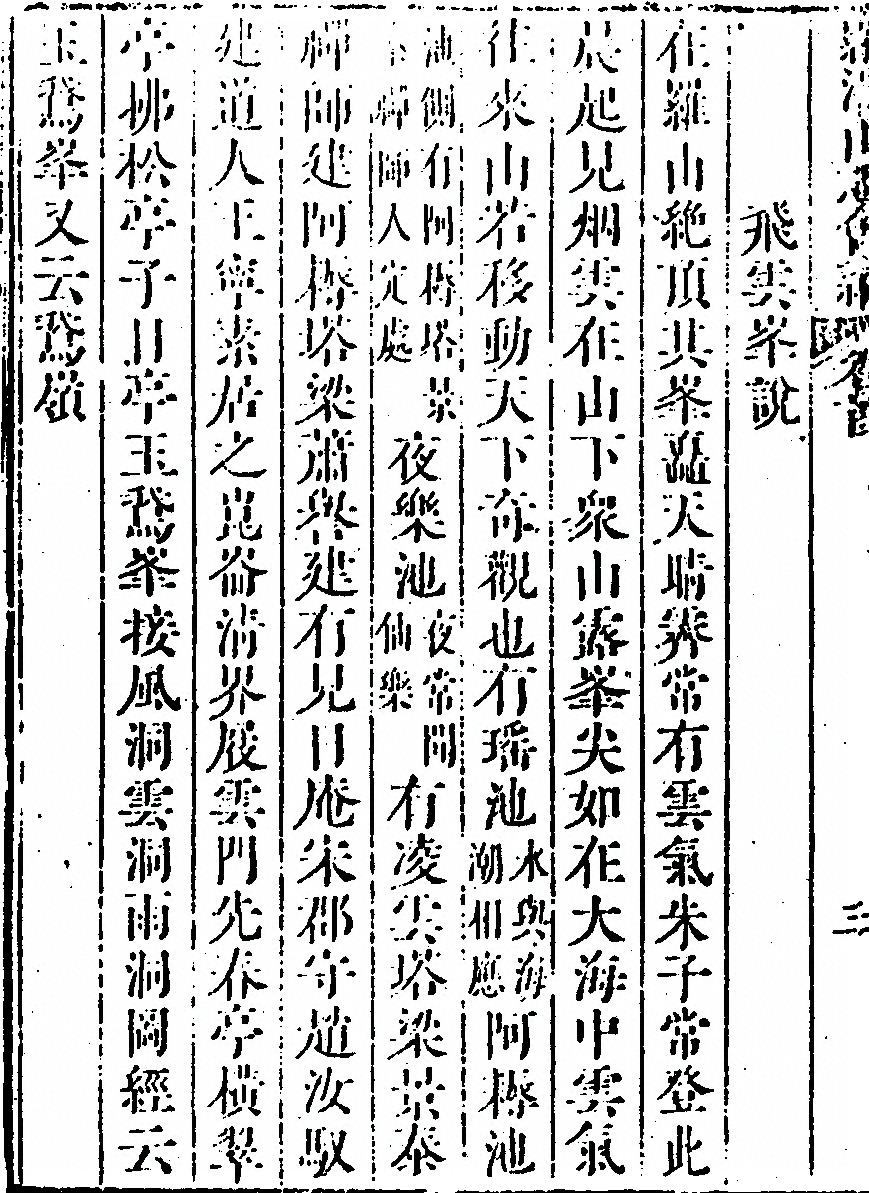 飛雲峯說
在羅山絶頂其峯矗天晴霽常有雲氣朱子常登此
晨起見烟雲在山下衆山露峯尖如在大海中雲氣
往來山若移動天下奇觀也有瑤池水與海潮相應阿耨池
池側有阿耨塔景泰禪師入定處夜樂池夜常聞仙樂有凌雲塔梁景泰
禪師建阿耨塔梁蕭譽建有見日庵宋郡守趙汝馭
建道人王寧素居之崑崙清界屐雲門先春亭橫翠
亭拂松亭子日亭玉鵞峯接風洞雲洞雨洞圖經云
玉鵞峯又云鵞嶺
三